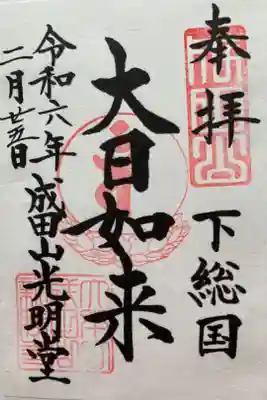 奉拝
下総国
大日如来
成田山光明堂
令和六年
二月廿五日